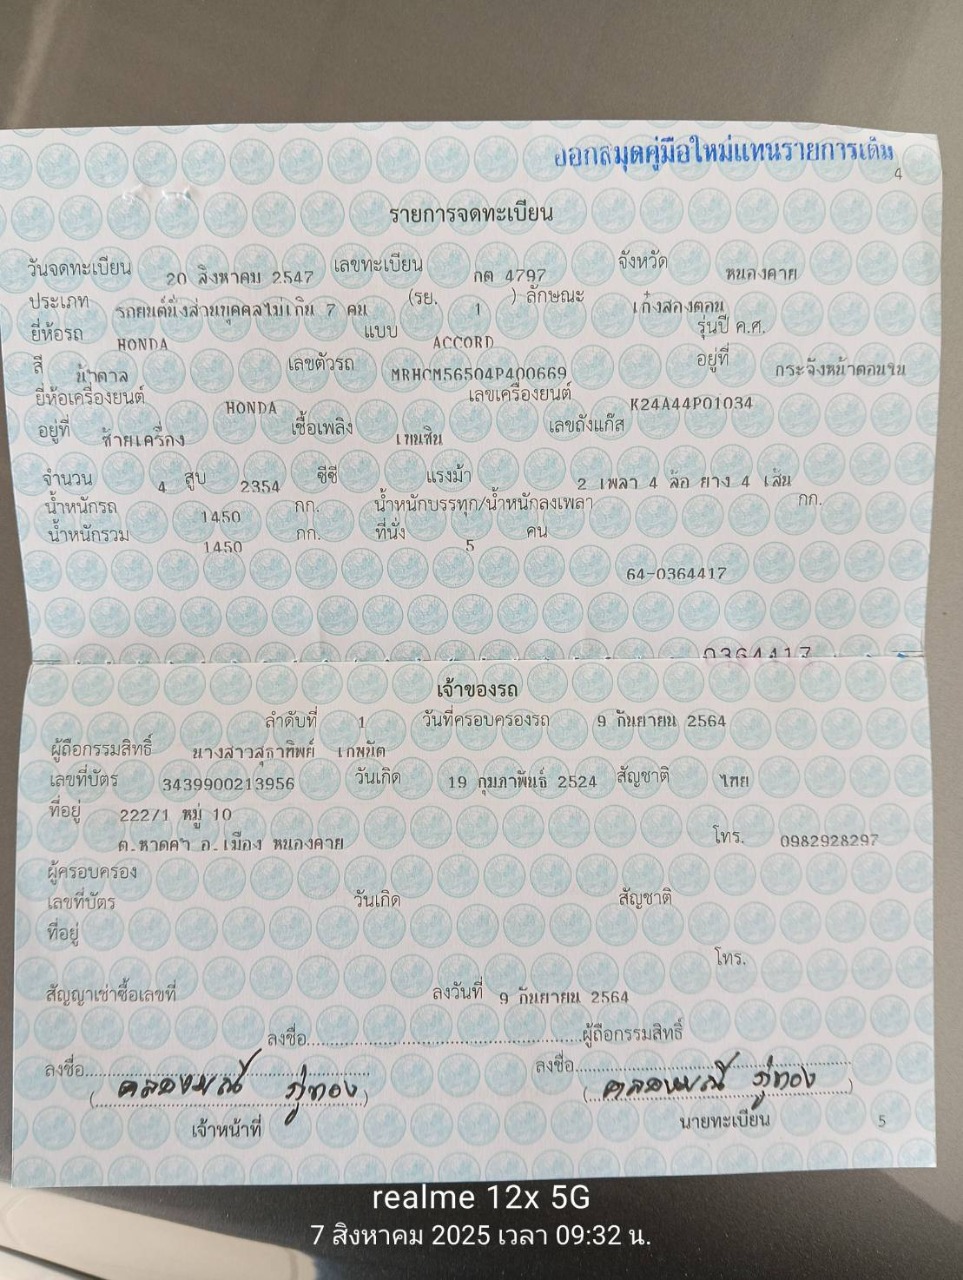 ออกสมุดคู่มือใหม่แทนรายการเดิม
4
รายการจดทะเบียน
วันจดทะเบียน 20 สิงหาคม 2547 เลขทะเบียน กต 4797 จังหวัด หนองคาย
ประเภท รถยนต์นั่งส่วนบุคคลไม่เกิน 7 คน (รย. 1 ) ลักษณะ เก๋งสองตอน
ยี่ห้อรถ HONDA แบบ ACCORD รุ่นปี ค.ศ.
สี น้ำตาล เลขตัวรถ MRHCM56504P400669 อยู่ที่ กระจังหน้าตอนใน
ยี่ห้อเครื่องยนต์ HONDA เลขเครื่องยนต์ K24A44P01034
อยู่ที่ ซ้ายเครื่อง เชื้อเพลิง เบนซิน เลขถังแก๊ส
จำนวน 4 สูบ 2354 ซีซี แรงม้า 2 เพลา 4 ล้อ ยาง 4 เส้น
น้ำหนักรถ 1450 กก. น้ำหนักบรรทุก/น้ำหนักลงเพลา กก.
น้ำหนักรวม 1450 กก. ที่นั่ง 5 คน
64-0364417
0364417
เจ้าของรถ
ลำดับที่ 1 วันที่ครอบครองรถ 9 กันยายน 2564
ผู้ถือกรรมสิทธิ์ นางสาวสุธาทิพย์
เลขที่บัตร 3439900213956 วันเกิด 19 กุมภาพันธ์ 2524 สัญชาติ ไทย
ที่อยู่ 222/1 หมู่ 10
ต.หาดคำ อ.เมือง หนองคาย โทร. 0982928297
ผู้ครอบครอง
เลขที่บัตร วันเกิด สัญชาติ
ที่อยู่
โทร.
สัญญาเช่าซื้อเลขที่ ลงวันที่ 9 กันยายน 2564
ลงชื่อ ผู้ถือกรรมสิทธิ์
ลงชื่อ ลงชื่อ
( ภู่ทอง ) ( ภู่ทอง )
เจ้าหน้าที่ นายทะเบียน
5
realme 12x 5G
7 สิงหาคม 2025 เวลา 09:32 น.